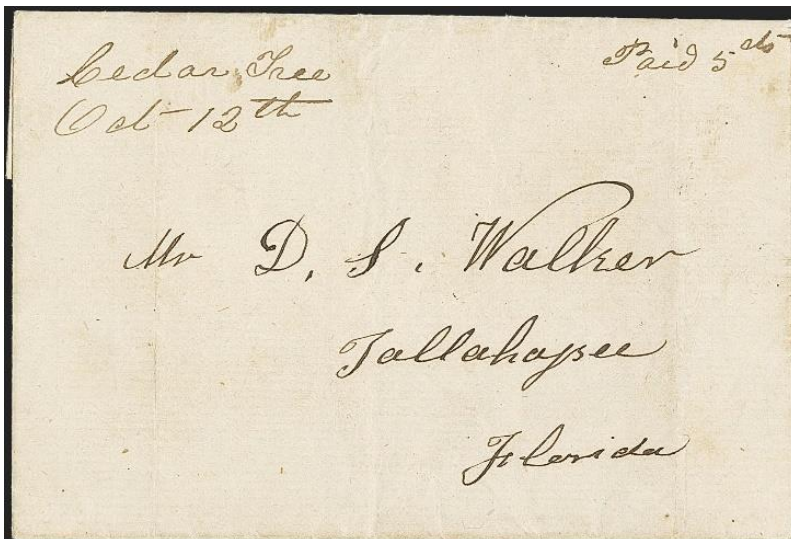 Cedar Tree
Oct 12th
Paid 5 cts
Mr D. S. Walker
Tallahassee
Florida